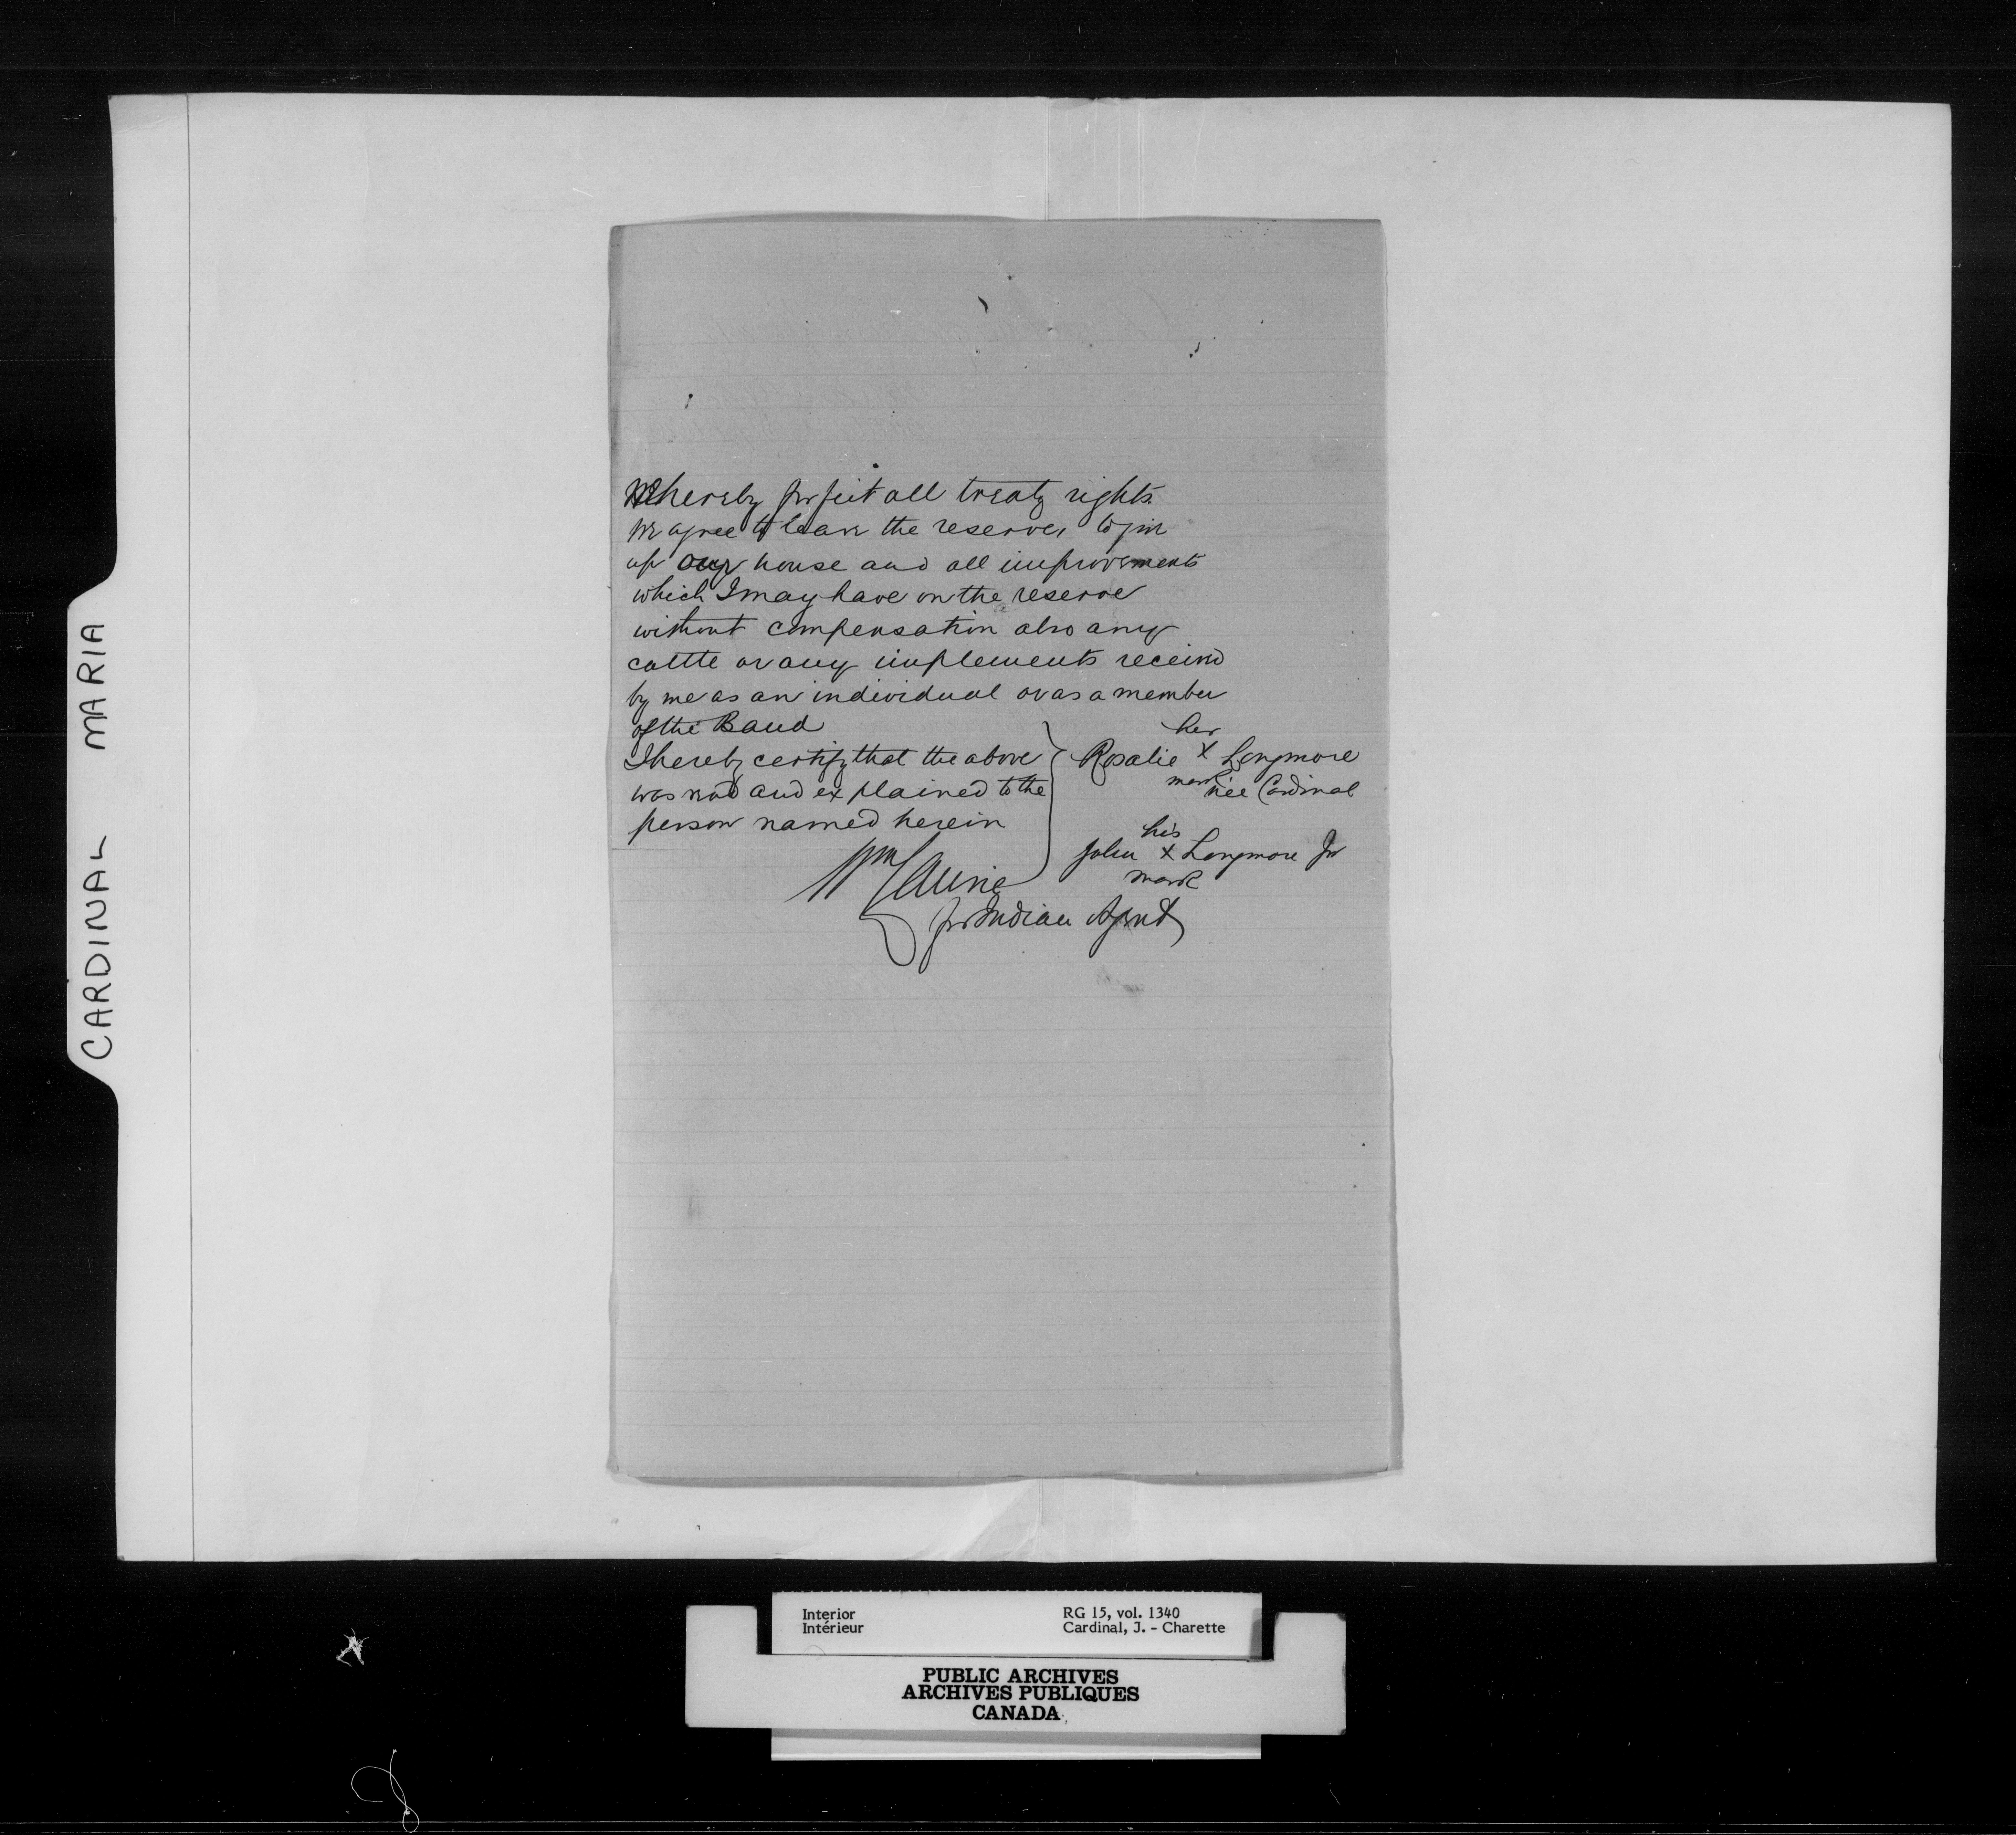 CARDINAL MARIA
We hereby forfeit all treaty rights.
We agree to leave the reserve, to give
up our house and all improvements
which I may have on the reserve
without compensation also any
cattle or any implements received
by me as an individual or as a member
of the Band
I hereby certify that the above
was read and explained to the
person named herein
her
Rosalie X Longmore
mark née Cardinal
his
John X Longmore Jr
mark
Wm Laurie
for Indian Agent
Interior
Intérieur
RG 15, vol. 1340
Cardinal, J. - Charette
PUBLIC ARCHIVES
ARCHIVES PUBLIQUES
CANADA